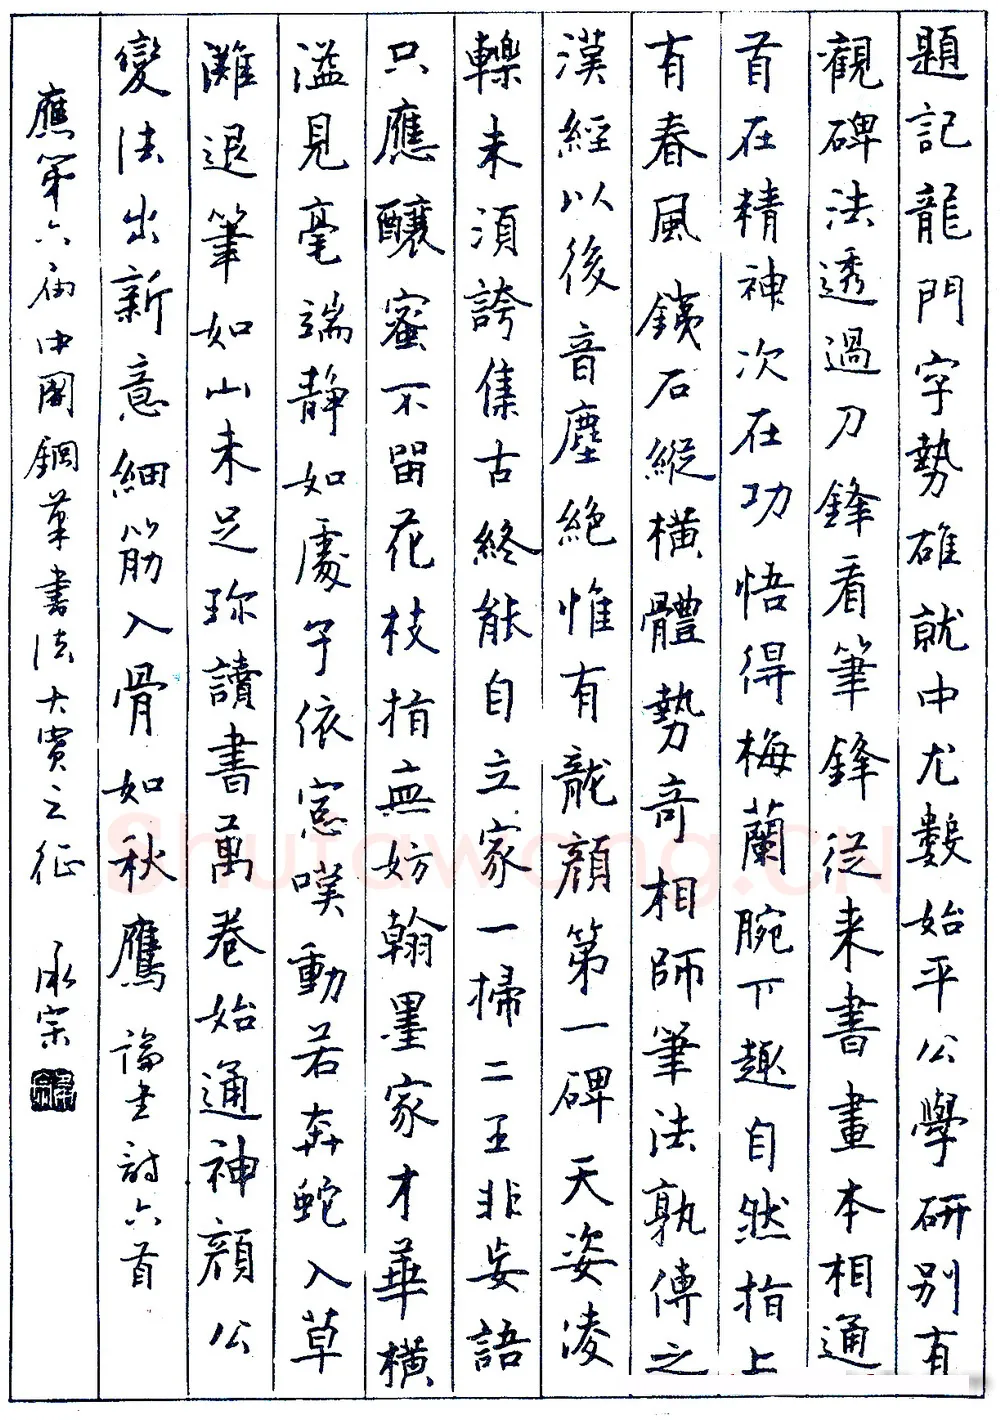 題記龍門字勢雄就中尤數始平公學研別有
觀碑法透過刀鋒看筆鋒從来書畫本相通
首在精神次在功悟得梅蘭腕下趣自然指上
有春風鐵石縱橫體勢奇相師筆法孰傳之
漢經以後音塵絕惟有龍顔第一碑天姿凌
轢未須誇集古終能自立家一掃二王非妄語
只應釀蜜不留花枝指無妨翰墨家才華橫
溢見毫端靜如處子依窓嘆動若奔蛇入草
灘退筆如山未足珎讀書萬卷始通神顔公
變法出新意細筋入骨如秋鷹 論書詩六首
應第六届中國鋼筆書法大賽之征 承宗
Shufawang.CN